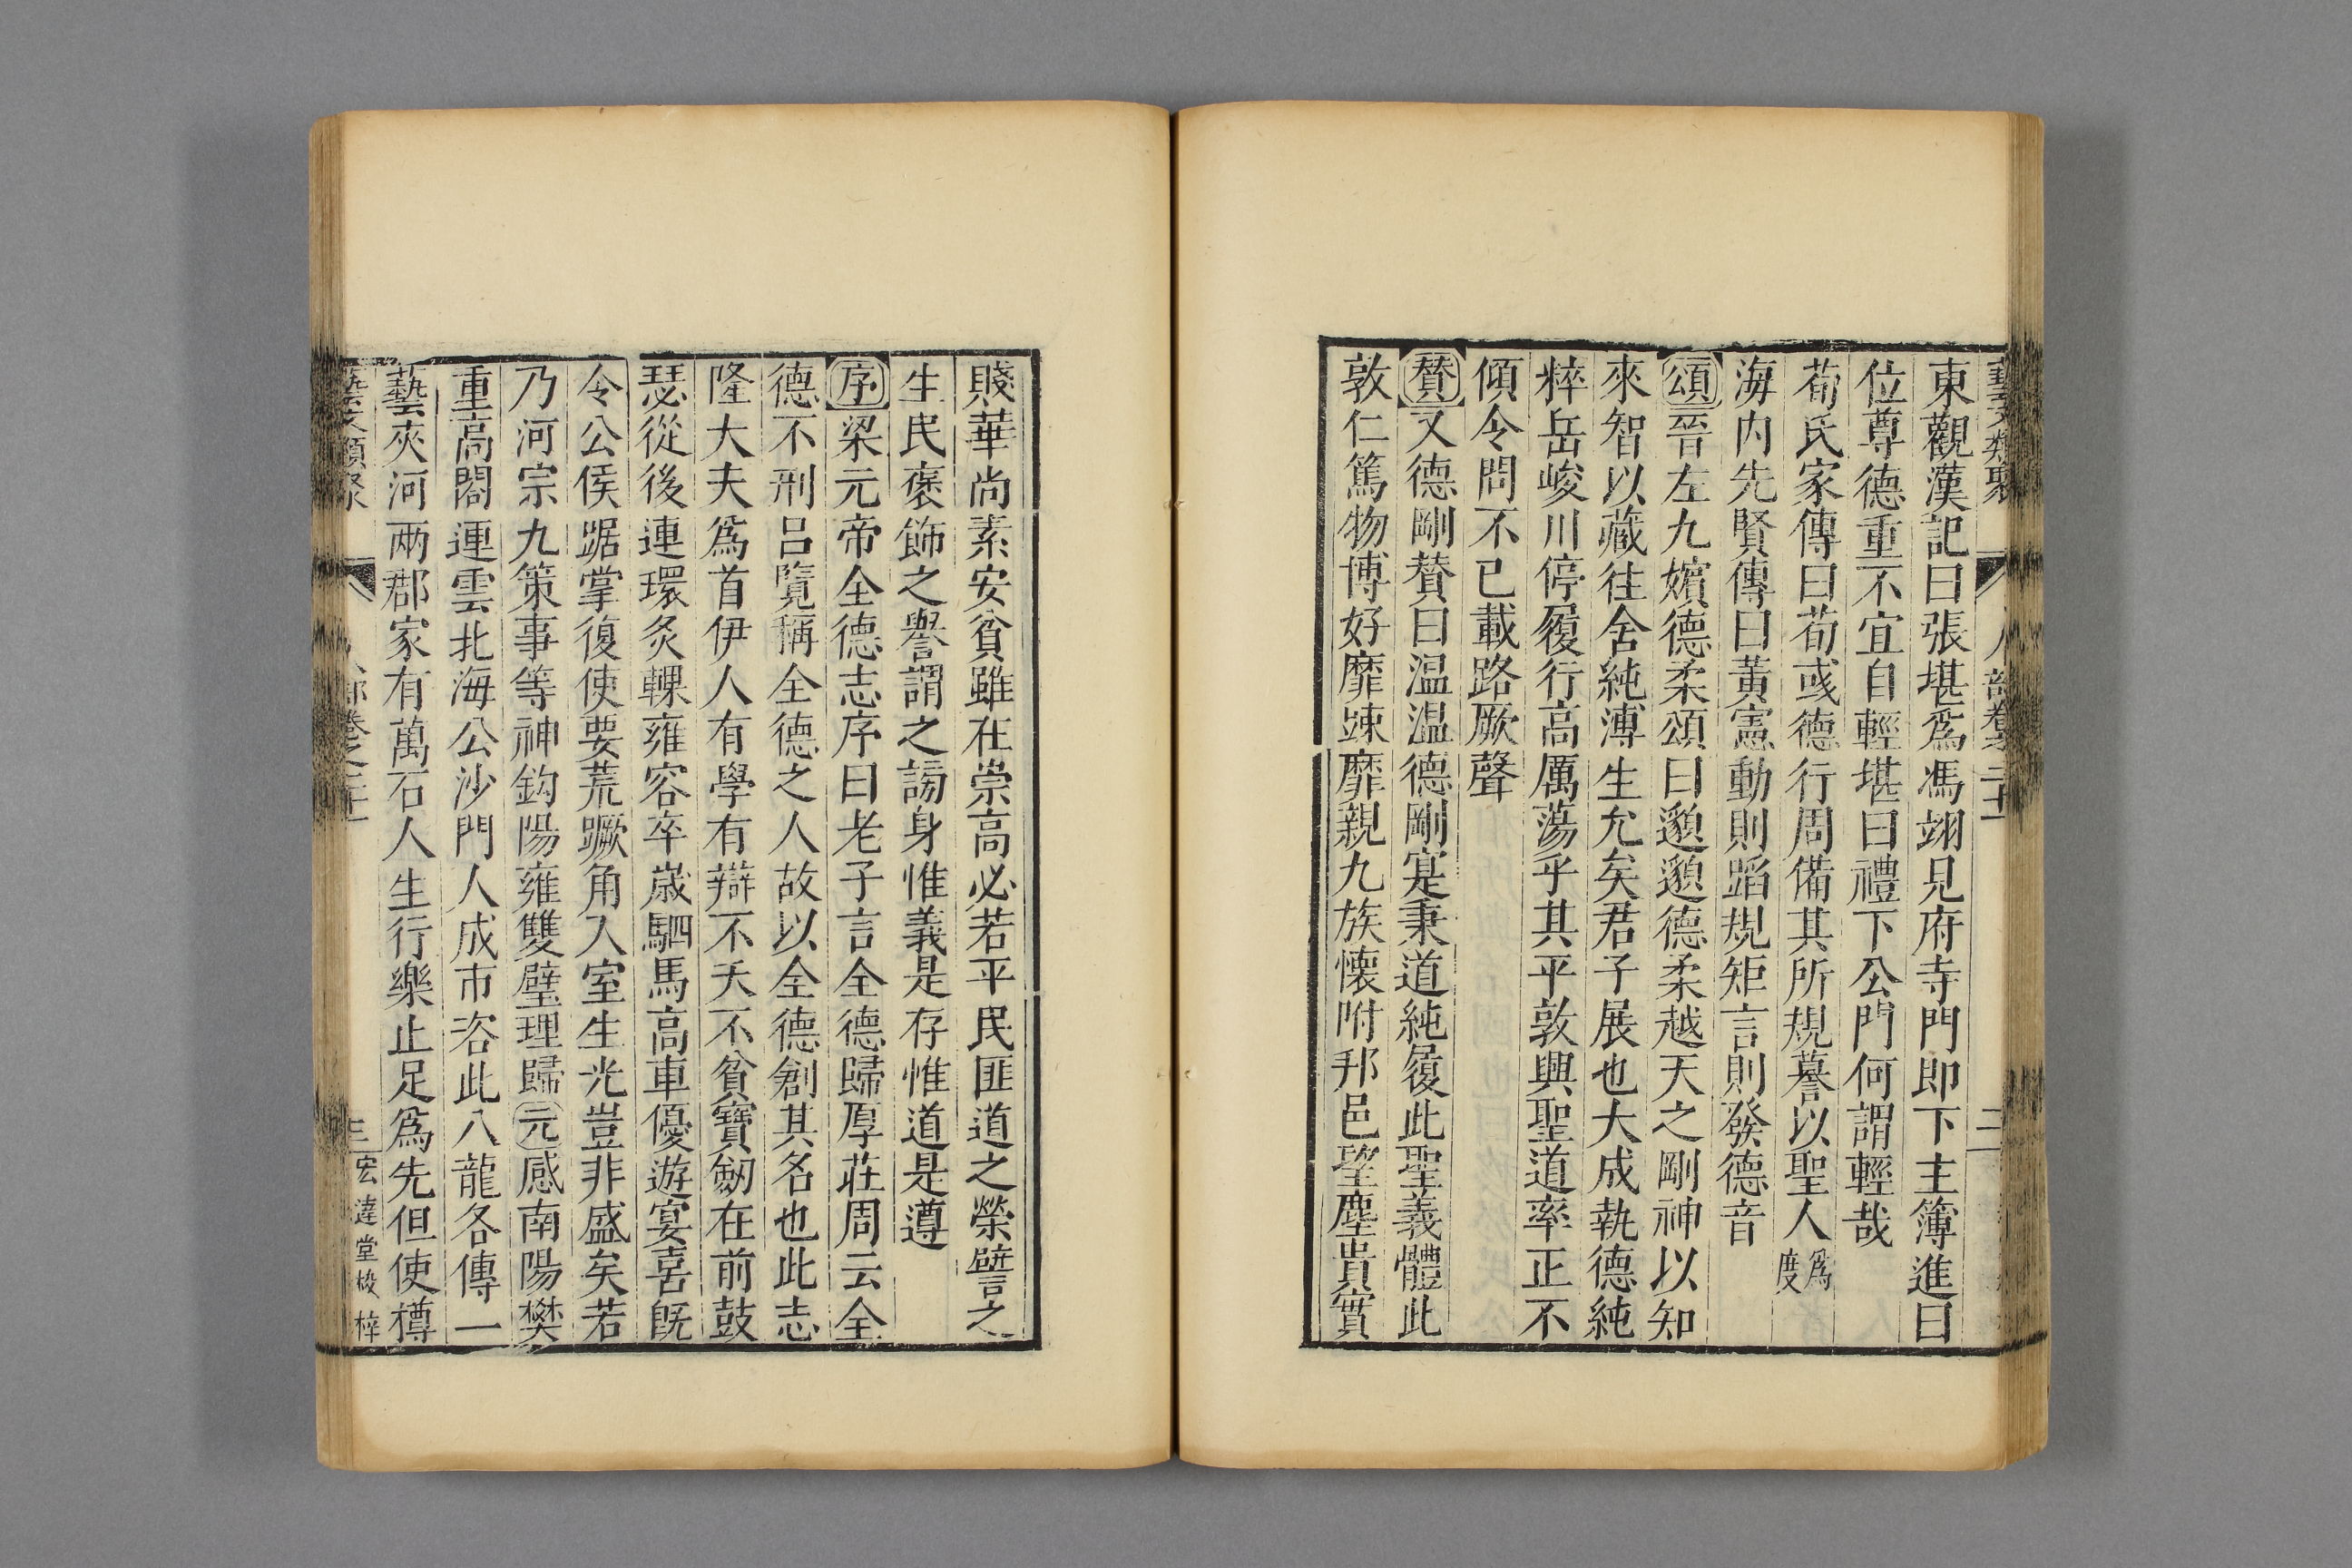 東觀漢記曰張堪爲馮翊見府寺門即下主簿進曰
位尊德重不宜自輕堪曰禮下公門何謂輕哉
荀氏家傳曰荀彧德行周備其所規謩以聖人爲度
海內先賢傳曰黃憲動則蹈規矩言則發德音
頌晉左九嬪德柔頌曰邈邈德柔越天之剛神以知
來智以藏往含純溥生允矣君子展也大成執德純
粹岳峻川停履行高厲蕩乎其平敦興聖道率正不
傾令問不已載路厥聲
贊又德剛贊曰温温德剛寔秉道純履此聖義體此
敦仁篤物博好靡踈靡親九族懷附邦邑望塵貴實
賤華尚素安貧雖在崇高必若平民匪道之榮譬之
生民褒飾之譽謂之謗身惟義是存惟道是遵
序梁元帝全德志序曰老子言全德歸厚莊周云全
德不刑呂覽稱全德之人故以全德創其名也此志
隆大夫爲首伊人有學有辯不夭不貧寶劒在前鼓
瑟從後連環炙輠雍容卒歲駟馬高車優遊宴喜旣
令公侯踞掌復使要荒蹶角入室生光豈非盛矣若
乃河宗九策事等神鈎陽雍雙璧理歸元感南陽樊
重高閣連雲北海公沙門人成市咨此八龍各傳一
藝夾河兩郡家有萬石人生行樂止足爲先但使樽
藝文類聚 人部卷之二十一 三 宏達堂校梓